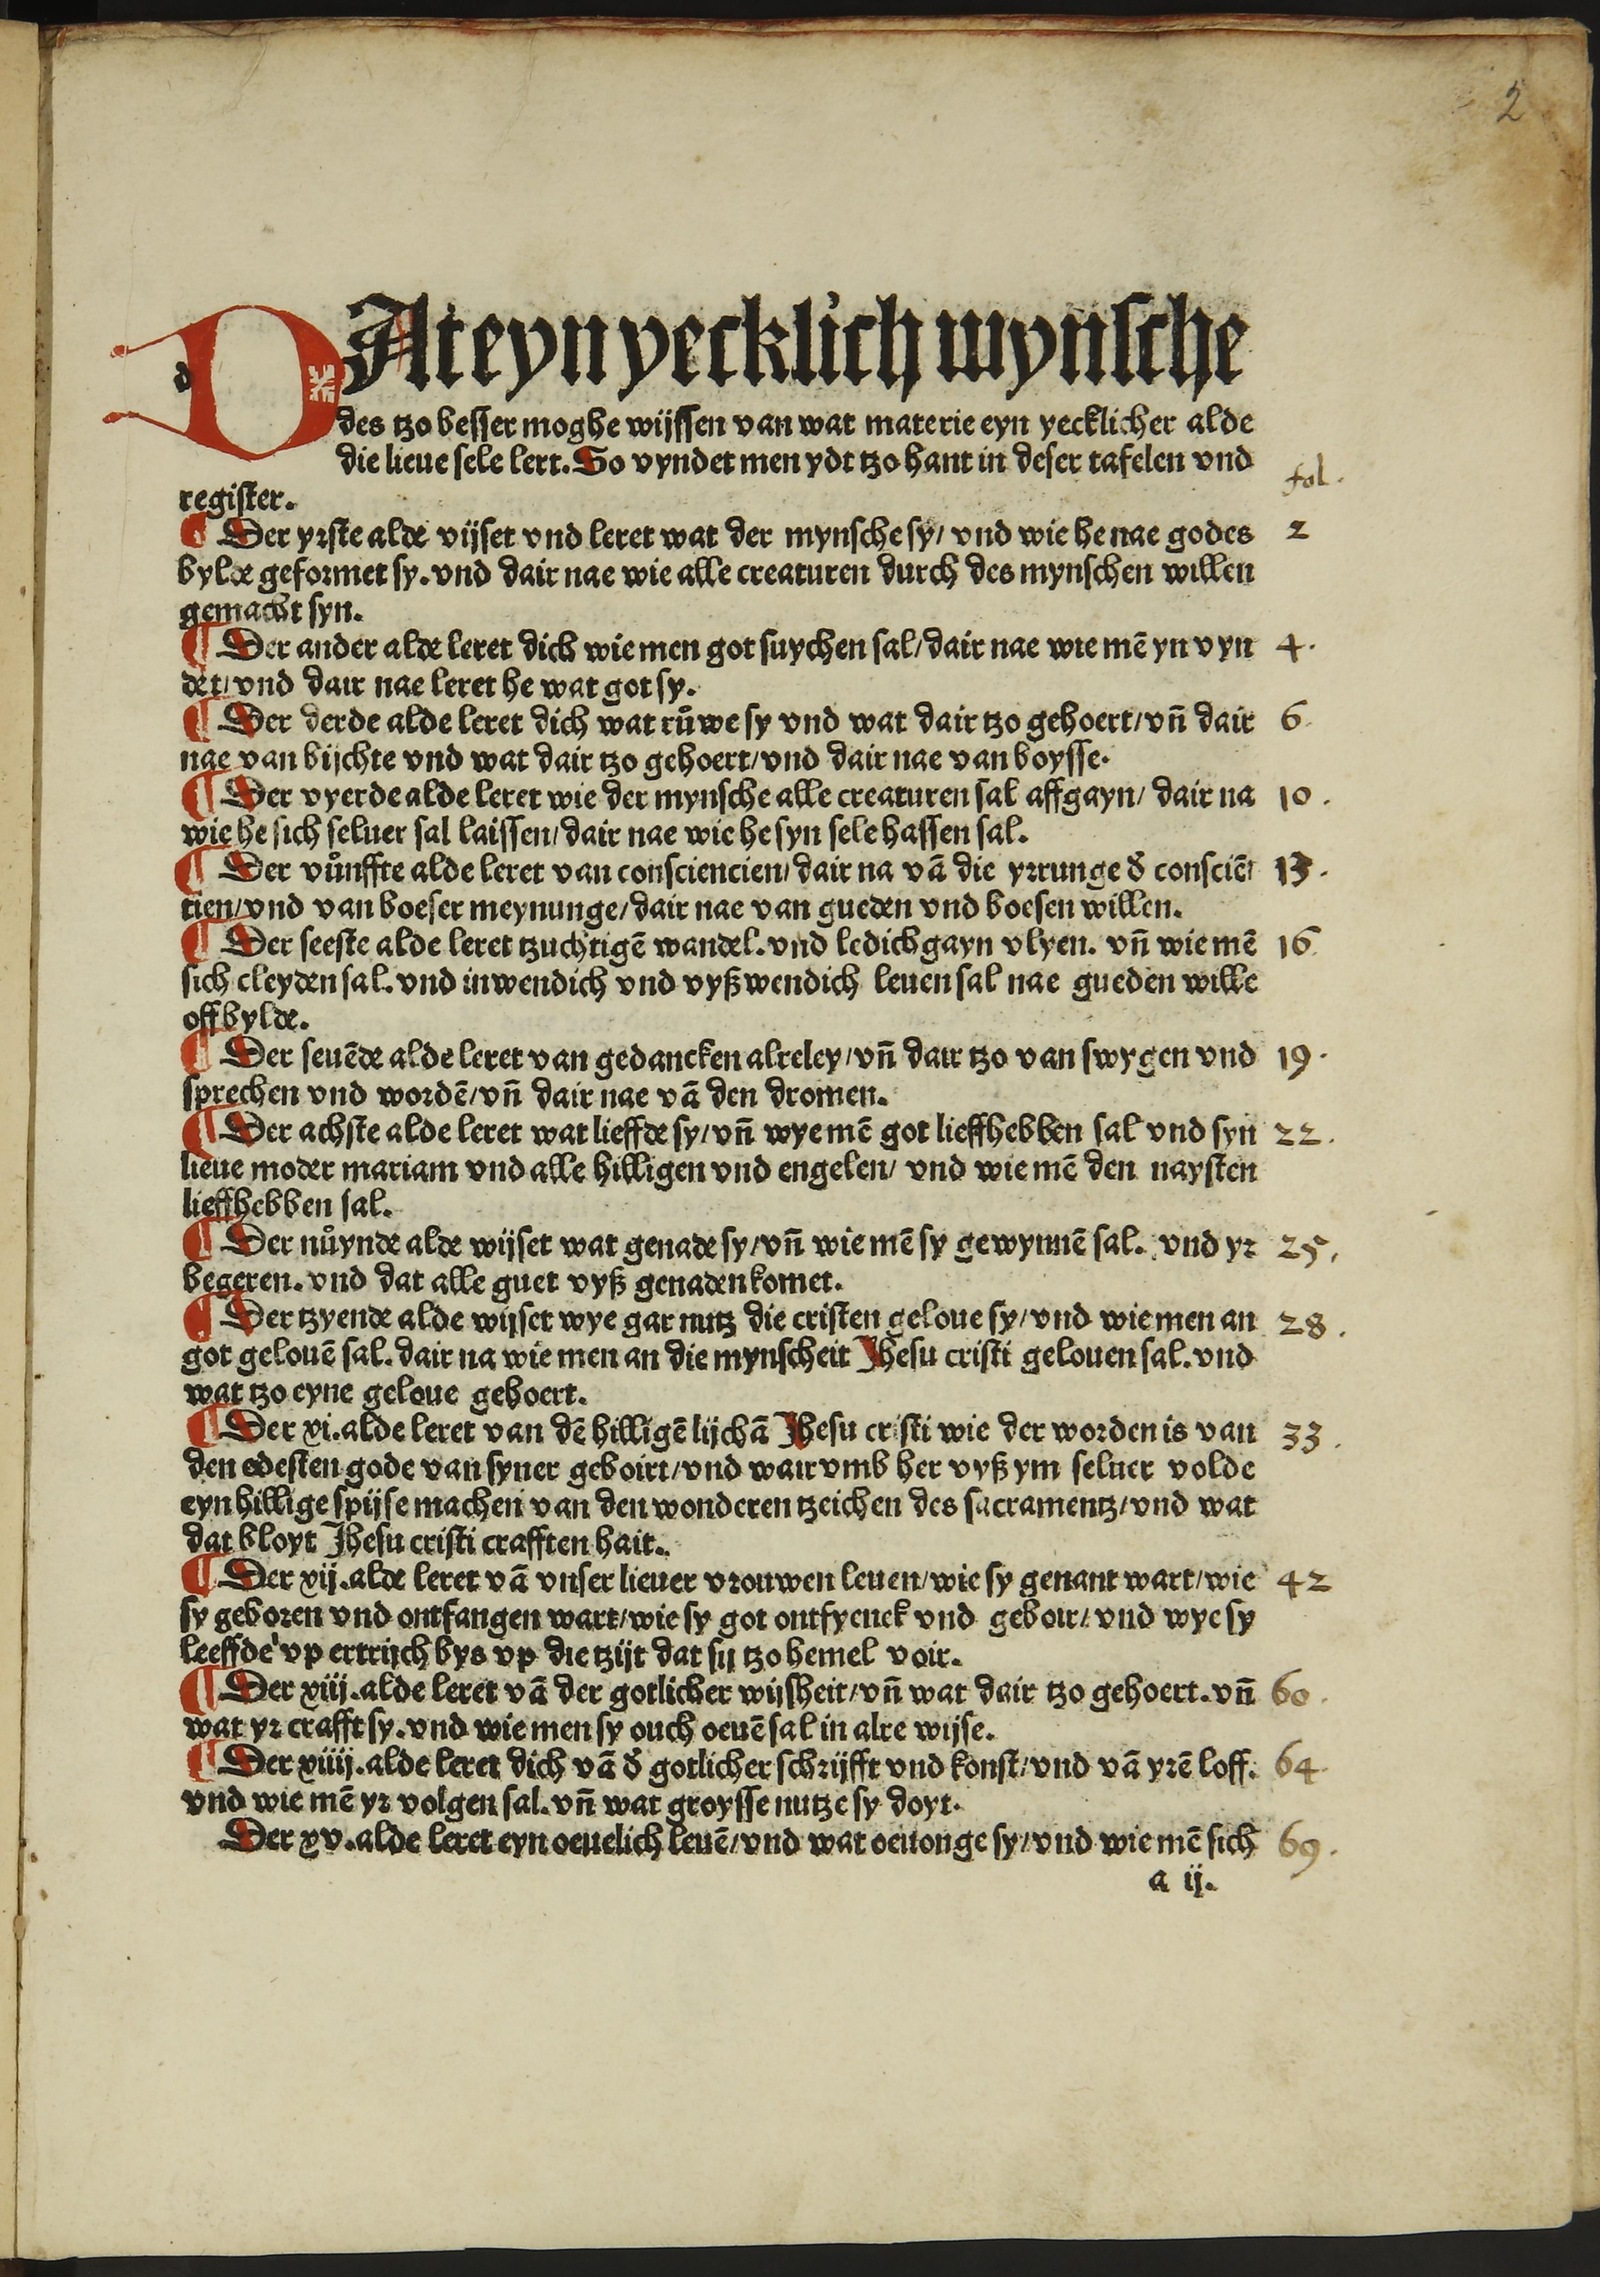 2
DAt eyn yecklich mynsche
des tzo besser moghe wijssen van wat materie eyn yecklicher alde
die lieue sele lert. So vyndet men ydt tzo hant in deser tafelen vnd
fol.
register.
¶ Der yrste alde vijset vnd leret wat der mynsche sy/ vnd wie he nae godes 2
bylde geformet sy. vnd dair nae wie alle creaturen durch des mynschen willen
gemacht syn.
¶ Der ander alde leret dich wie men got suychen sal/ dair nae wie mē yn vyn 4.
det/ vnd dair nae leret he wat got sy.
¶ Der derde alde leret dich wat růwe sy vnd wat dair tzo gehoert/ vñ dair 6.
nae van bijchte vnd wat dair tzo gehoert/ vnd dair nae van boysse.
¶ Der vyerde alde leret wie der mynsche alle creaturen sal affgayn/ dair na 10.
wie he sich seluer sal laissen/ dair nae wie he syn sele hassen sal.
¶ Der vůnffte alde leret van consciencien/ dair na vā die yrrunge đ consciē/ 13.
tien/ vnd van boeser meynunge/ dair nae van gueden vnd boesen willen.
¶ Der seeste alde leret tzuchtigē wandel. vnd ledichgayn vlyen. vñ wie mē 16.
sich cleyden sal. vnd inwendich vnd vyßwendich leuen sal nae gueden wille
off bylde.
¶ Der seuēde alde leret van gedancken alreley/ vñ dair tzo van swygen vnd 19.
sprechen vnd wordē/ vñ dair nae vā den dromen.
¶ Der achste alde leret wat lieffde sy/ vñ wye mē got lieffhebben sal vnd syn 22.
lieue moder mariam vnd alle hilligen vnd engelen/ vnd wie mē den naysten
lieffhebben sal.
¶ Der nůynde alde wijset wat genade sy/ vñ wie mē sy gewynnē sal. vnd yr 25.
begeren. vnd dat alle guet vyß genaden komet.
¶ Der tzyende alde wijset wye gar nutz die cristen geloue sy/ vnd wie men an 28.
got gelouē sal. dair na wie men an die mynscheit Jhesu cristi gelouen sal. vnd
wat tzo eyne geloue gehoert.
¶ Der xi. alde leret van dē hilligē lijchā Jhesu cristi wie der worden is van 33.
den edesten gode van syner geboirt/ vnd wair vmb her vyß ym seluer volde
eyn hillige spijse machen van den wonderen tzeichen des sacramentz/ vnd wat
dat bloyt Jhesu cristi crafften hait.
¶ Der xij. alde leret vā vnser lieuer vrouwen leuen/ wie sy genant wart/ wie 42
sy geboren vnd ontfangen wart/ wie sy got ontfyenck vnd geboir/ vnd wye sy
leeffde vp ertrijch bys vp die tzijt dat sij tzo hemel voir.
¶ Der xiij. alde leret vā der gotlicher wijsheit/ vñ wat dair tzo gehoert. vñ 60.
wat yr crafft sy. vnd wie men sy ouch oeuē sal in alre wijse.
¶ Der xiiij. alde leret dich vā đ gotlicher schrijfft vnd konst/ vnd vā yrē loff. 64.
vnd wie mē yr volgen sal. vñ wat groysse nutze sy doyt.
Der xv. alde leret eyn oeuelich leuē/ vnd wat oeuonge sy/ vnd wie mē sich 69.
a ij.